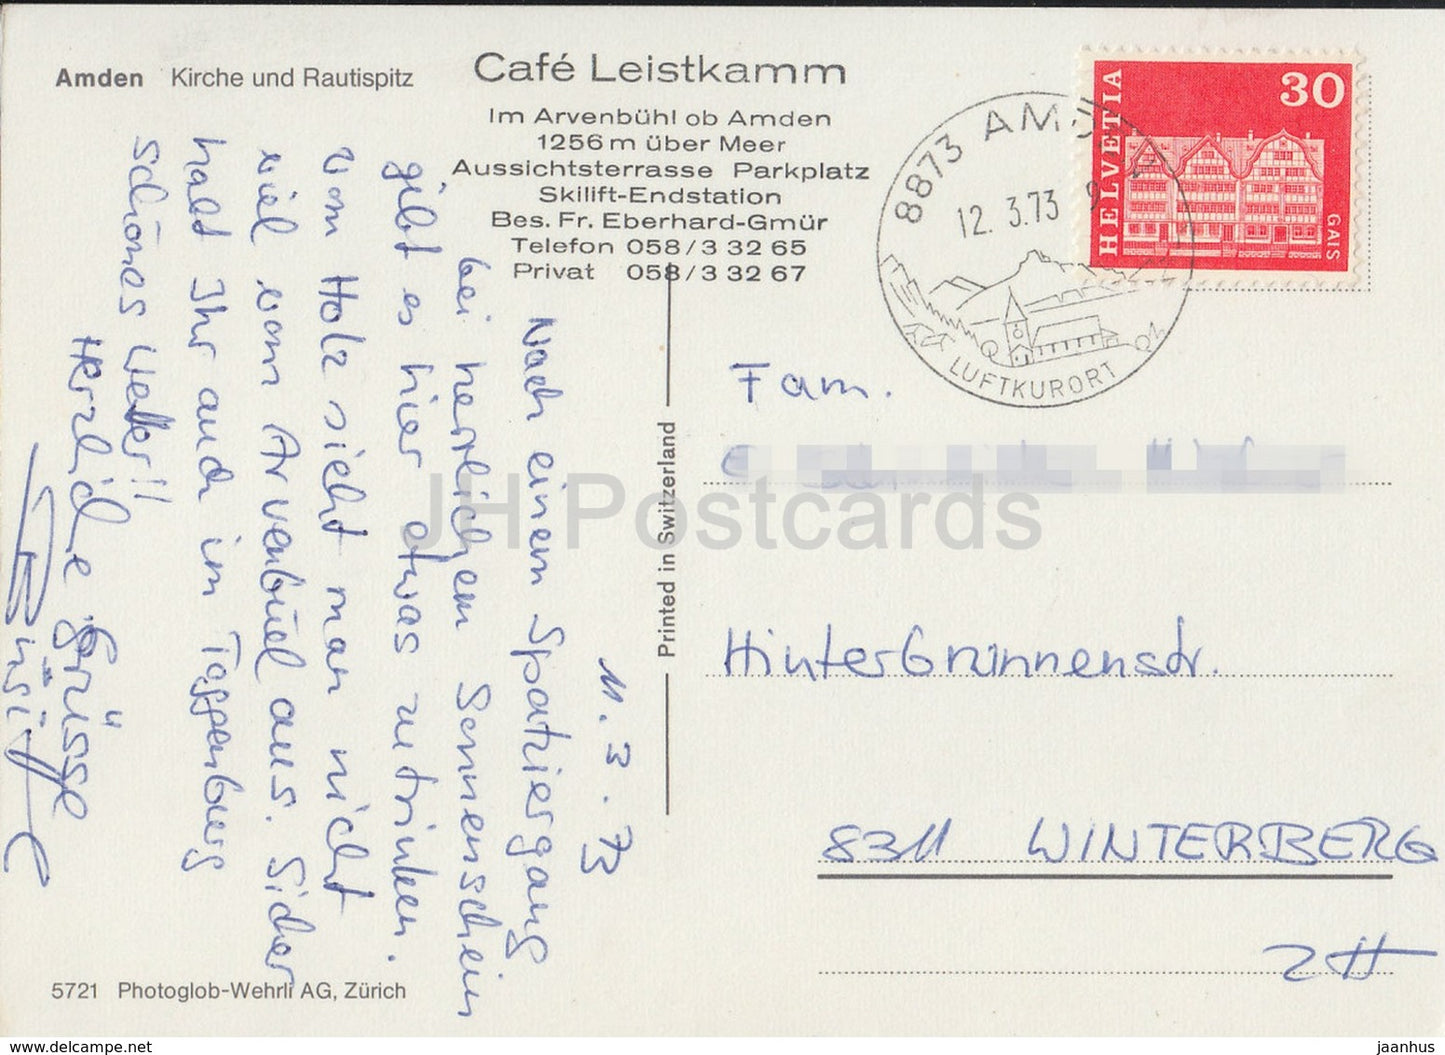 Amden Kirche und Rautispitz
Café Leistkamm
Im Arvenbühl ob Amden
1256 m über Meer
Aussichtsterrasse Parkplatz
Skilift-Endstation
Bes. Fr. Eberhard-Gmür
Telefon 058/3 32 65
Privat 058/3 32 67
8873 AMDEN
12. 3.73
LUFTKURORT
HELVETIA
30
GAIS
11. 3. 73
Nach einem Spatziergang
bei herrlichem Sonnenschein
gibt es hier etwas zu trinken.
Vom Holz sieht man nicht
viel vom Arvenbüel aus. Sicher
habt Ihr auch im Toggenburg
schönes Wetter!!
Herzliche Grüsse
Printed in Switzerland
Fam.
Hinterbrunnenstr.
8311 WINTERBERG
ZH
5721 Photoglob-Wehrli AG, Zürich
JH Postcards
www.delcampe.net
jaanhus